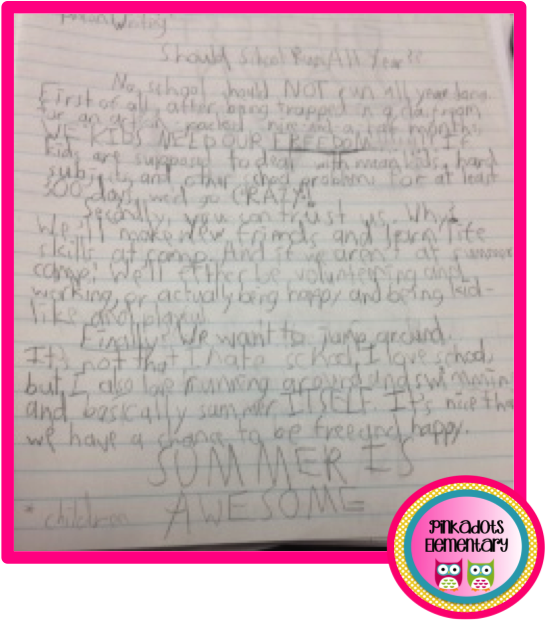 Writing
Should School Run All Year??
No, school should NOT run all year long.
First of all, after being trapped in a classroom
for an action-packed nine-and-a-half months,
WE KIDS NEED OUR FREEDOM!!!!! If
kids are supposed to deal with mean kids, hard
subjects and other school problems for at least
300 days, we'd go CRAZY!
Secondly, you can trust us. Why?
We'll make new friends and learn life
skills at camp. And if we aren't at summer
camp, we'll either be volunteering and
working, or actually being happy and being kid-
like and playful.
Finally: We want to jump around.
It's not that I hate school, I love school,
but I also love running around and swimming
and basically summer ITSELF. It's nice tha
we have a chance to be free and happy.
SUMMER IS
AWESOME
* children
Pinkadots
Elementary